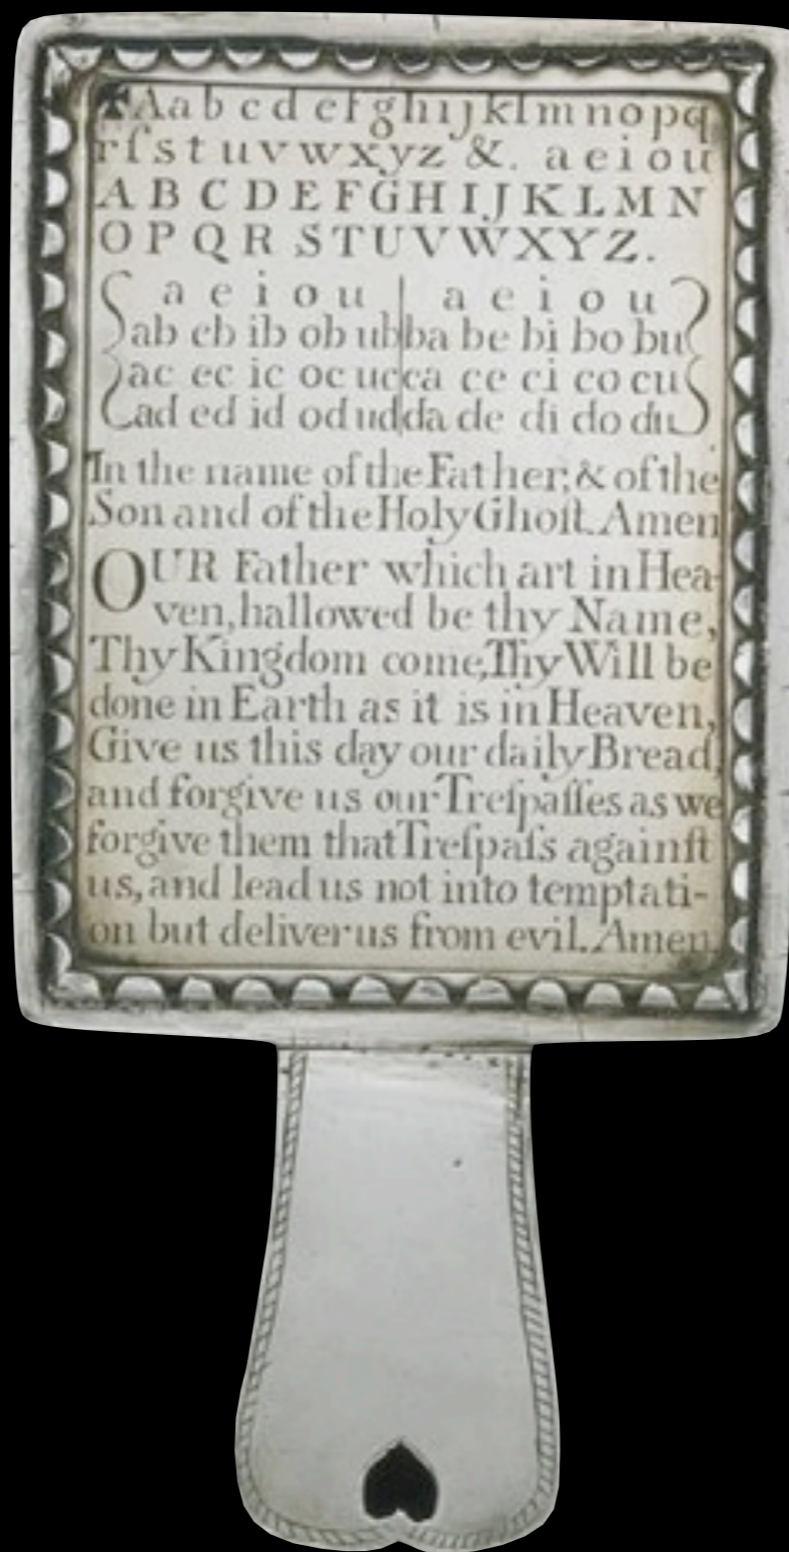 ✠Aabcdefghijklmnopq
rſstuvwxyz &. aeiou
ABCDEFGHIJKLMN
OPQRSTUVWXYZ.
a e i o u | a e i o u
ab eb ib ob ub|ba be bi bo bu
ac ec ic oc uc|ca ce ci co cu
ad ed id od ud|da de di do du
In the name of the Father, & of the
Son and of the Holy Ghoſt. Amen
OUR Father which art in Hea-
ven, hallowed be thy Name,
Thy Kingdom come, Thy Will be
done in Earth as it is in Heaven,
Give us this day our daily Bread,
and forgive us our Treſpaſſes as we
forgive them that Treſpaſs againſt
us, and lead us not into temptati-
on but deliver us from evil. Amen.